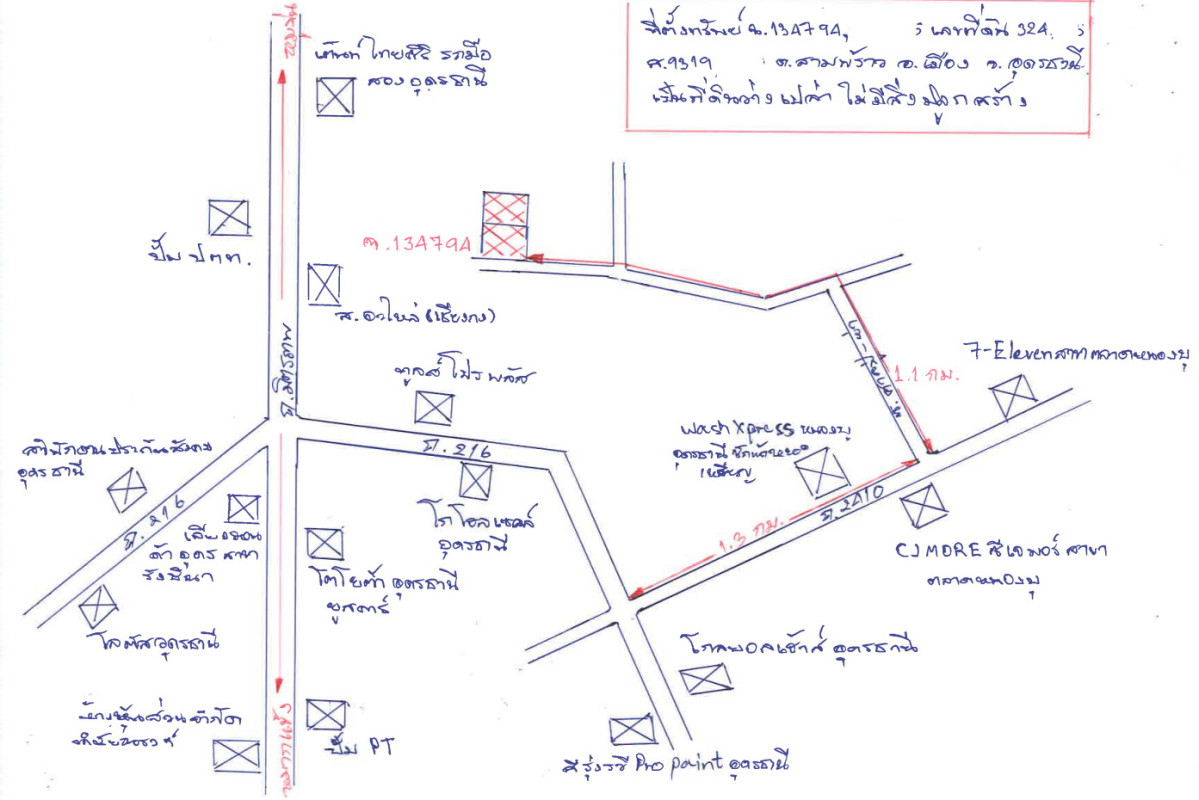 ที่ตั้งทรัพย์ ฉ.134794, ; เลขที่ดิน 324 ;
ต.สามพร้าว อ.เมือง จ.อุดรธานี
เป็นที่ดินว่างเปล่า ไม่มีสิ่งปลูกสร้าง
เต็นท์ไทยศิริ รถมือ
สอง อุดรธานี
ปั๊ม ปตท.
ฉ.134794
ส.อะไหล่ (เชียงกง)
ถ.มิตรภาพ
7-Eleven สาขาตลาดหนองบุ
1.1 กม.
ทูลส์ โปร พลัส
ถ.216
Wash Xpress หนองบุ
อุดรธานี ซักผ้าหยอด
เหรียญ
สำนักงานประกันสังคม
อุดรธานี
ถ.216
โกลบอลเฮ้าส์
อุดรธานี
1.3 กม.
ถ.2410
CJ MORE ซีเจมอร์ สาขา
ตลาดหนองบุ
โตโยต้า อุดรธานี
ยูสคาร์
โลตัสอุดรธานี
โกลบอลเฮ้าส์ อุดรธานี
ห้างหุ้นส่วนจำกัด
ปั๊ม PT
สีรุ้งรวี Pro paint อุดรธานี